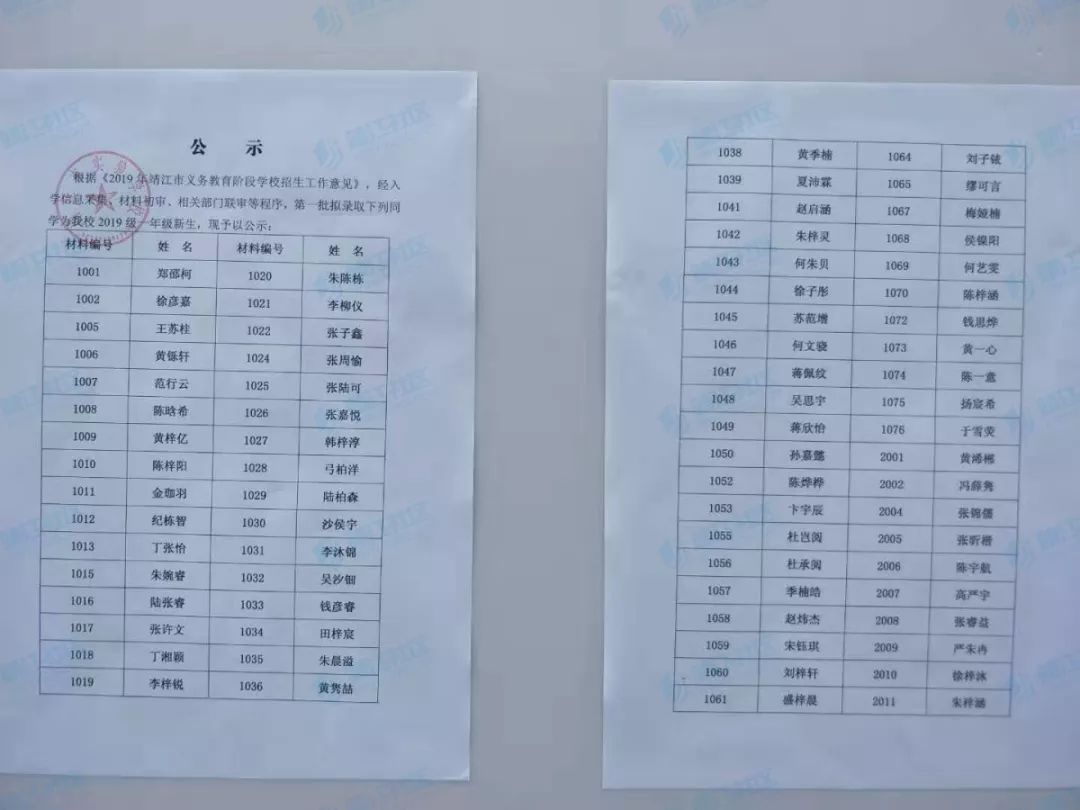 公 示
根据《2019 年靖江市义务教育阶段学校招生工作意见》，经入
学信息采集、材料初审、相关部门联审等程序，第一批拟录取下列同
学为我校 2019 级一年级新生，现予以公示：
材料编号 姓 名 材料编号 姓 名
1001 郑邵柯 1020 朱陈栋
1002 徐彦嘉 1021 李柳仪
1005 王苏桂 1022 张子鑫
1006 黄铄轩 1024 张周愉
1007 范行云 1025 张陆可
1008 陈晗希 1026 张嘉悦
1009 黄梓亿 1027 韩梓淳
1010 陈梓阳 1028 弓柏洋
1011 金珈羽 1029 陆柏森
1012 纪栋智 1030 沙侯宇
1013 丁张怡 1031 李沐锦
1015 朱婉睿 1032 吴汐钿
1016 陆张睿 1033 钱彦睿
1017 张许文 1034 田梓宸
1018 丁湘颖 1035 朱晨溢
1019 李梓锐 1036 黄隽喆
1038 黄季楠 1064 刘子铱
1039 夏沛霖 1065 缪可言
1041 赵启涵 1067 梅娅楠
1042 朱梓灵 1068 侯镍阳
1043 何朱贝 1069 何艺雯
1044 徐子彤 1070 陈梓涵
1045 苏范增 1072 钱思烨
1046 何文骁 1073 黄一心
1047 蒋佩纹 1074 陈一意
1048 吴思宇 1075 扬宸希
1049 蒋欣怡 1076 于雪荧
1050 孙嘉懿 2001 黄浠郴
1052 陈烨桦 2002 冯薛隽
1053 卞宇辰 2004 张锦儒
1055 杜岂阅 2005 张昕栅
1056 杜承阅 2006 陈宇航
1057 季楠皓 2007 高严宇
1058 赵炜杰 2008 张睿益
1059 宋钰琪 2009 严朱冉
1060 刘梓轩 2010 徐梓沐
1061 盛梓晨 2011 朱梓涵